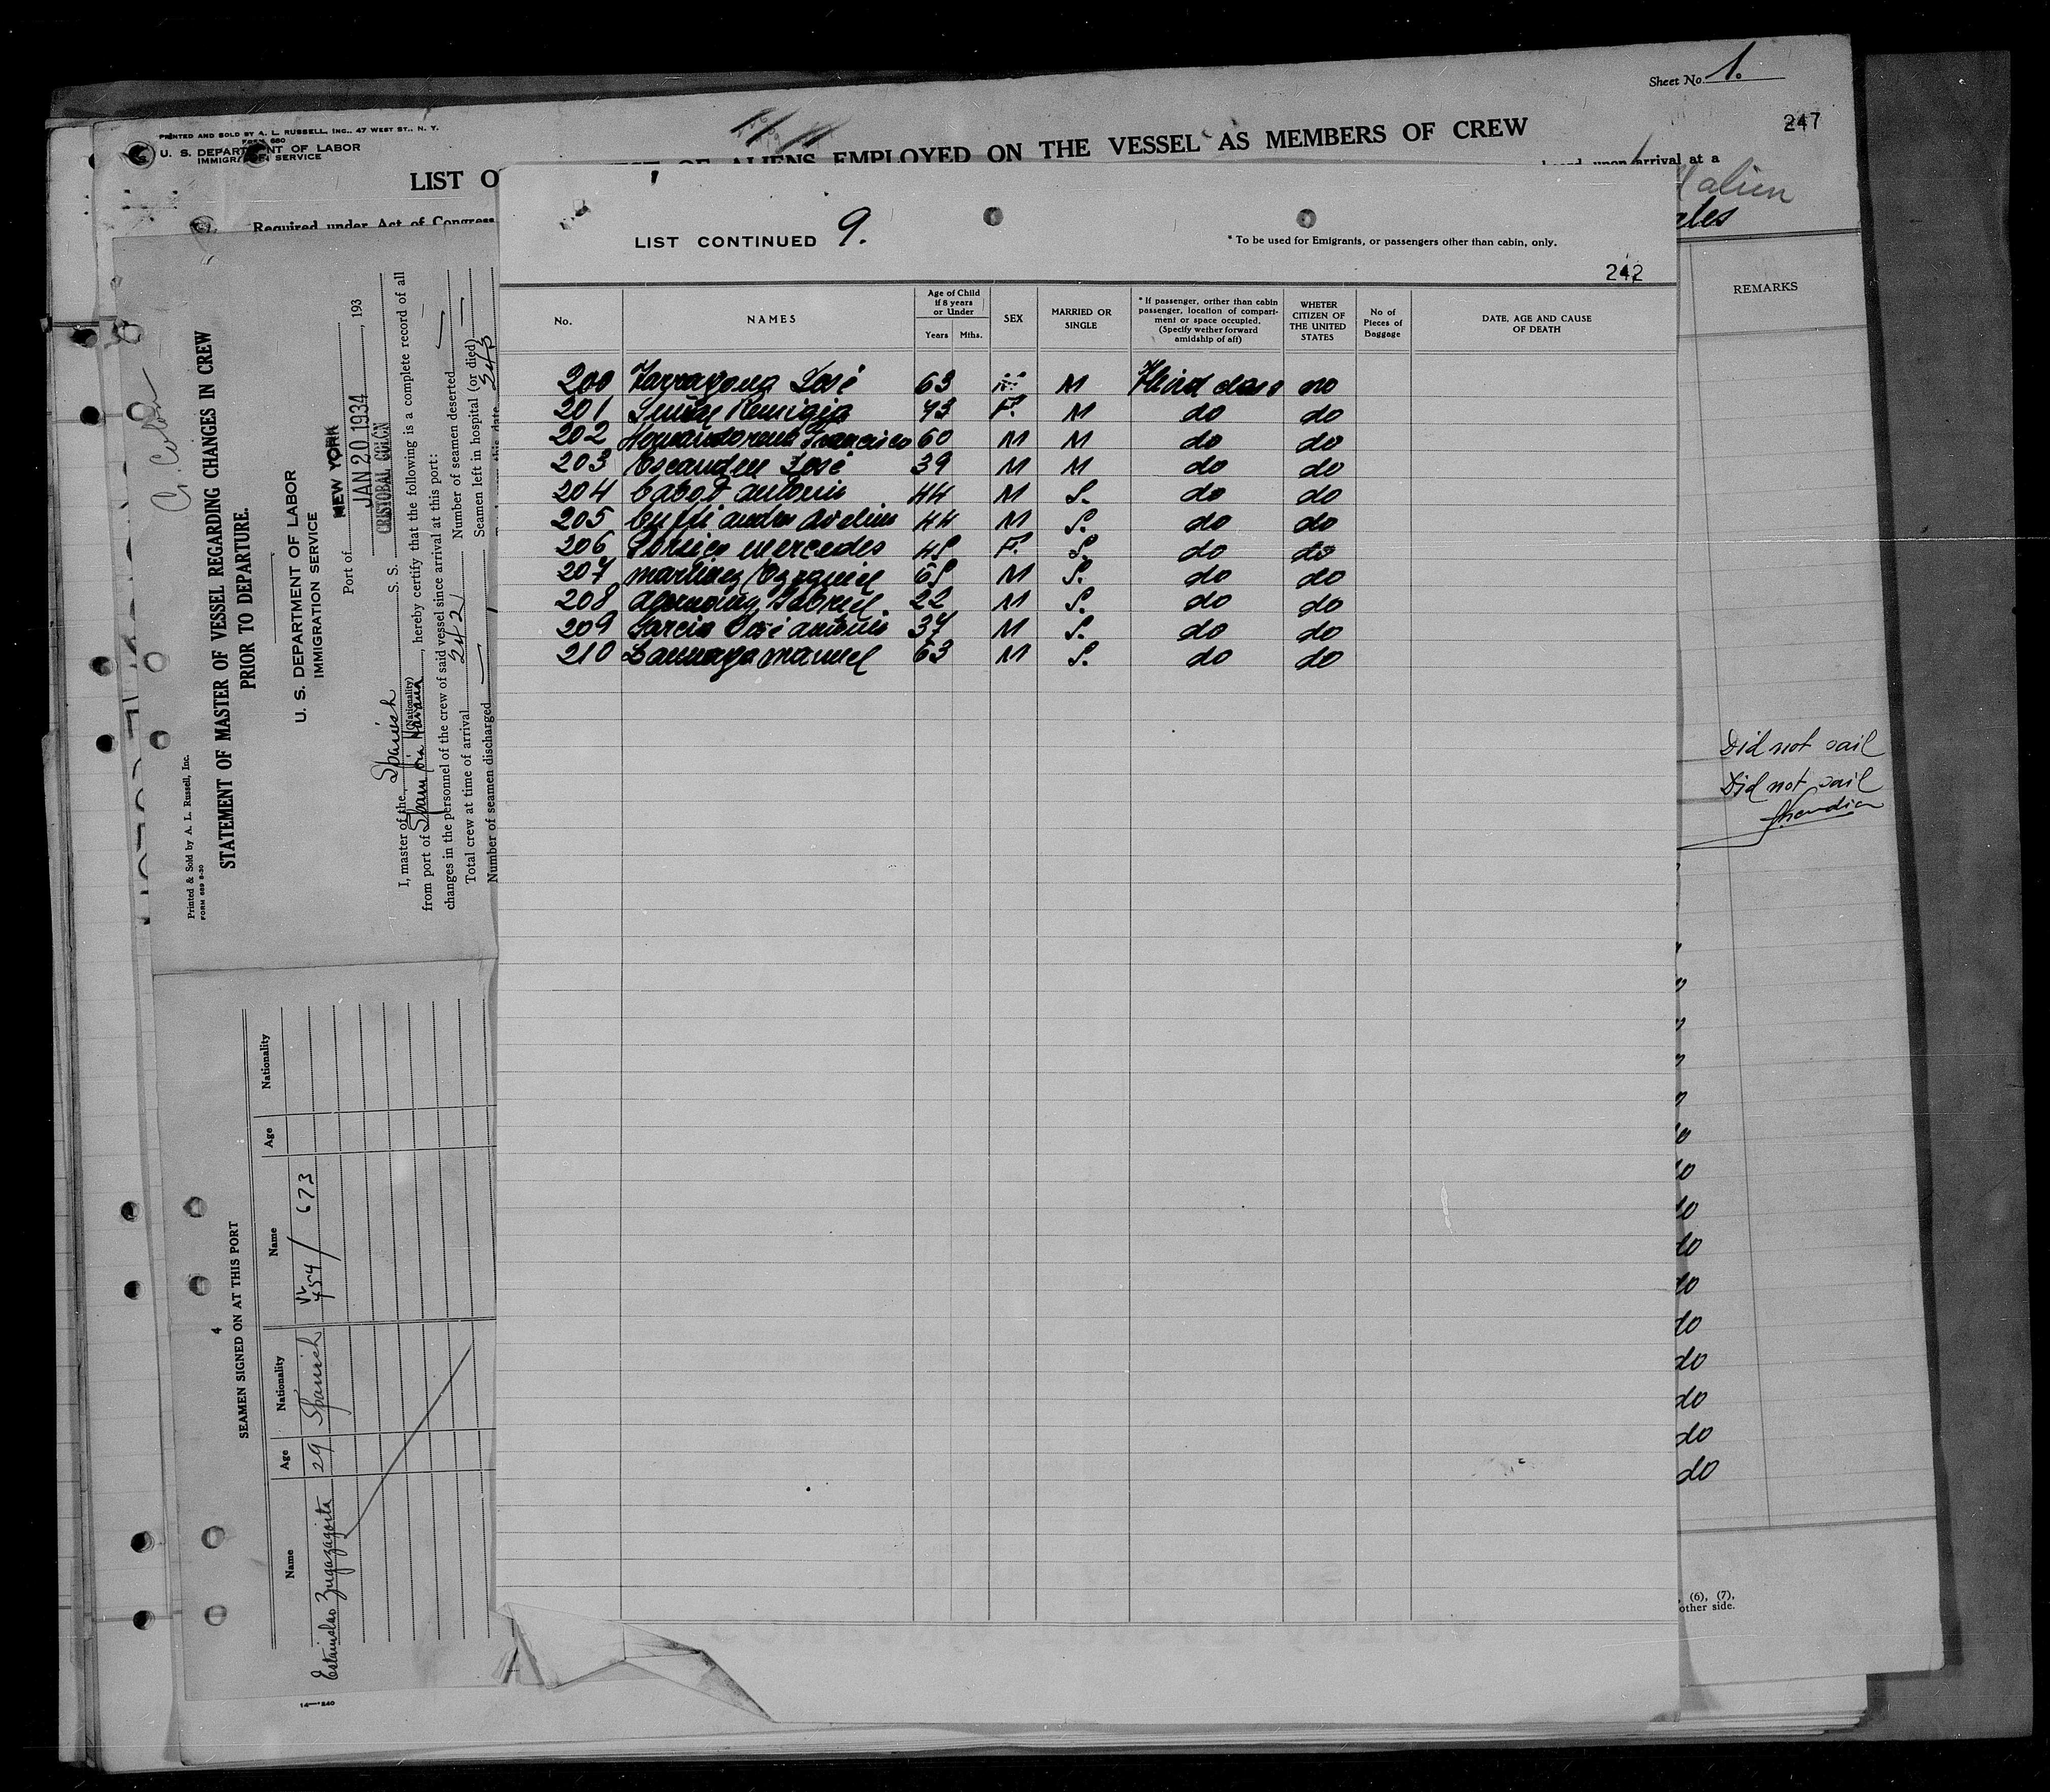 Sheet No. 1.
247
PRINTED AND SOLD BY A. L. RUSSELL, INC., 47 WEST ST., N. Y.
FORM 680
U. S. DEPARTMENT OF LABOR
IMMIGRATION SERVICE
LIST OF ALIENS EMPLOYED ON THE VESSEL AS MEMBERS OF CREW
LIST O
arrival at a
alien
Required under Act of Congress
REMARKS
Did not sail
Did not sail
do
do
do
do
do
do
do
do
(6), (7),
other side.
LIST CONTINUED 9.
* To be used for Emigrants, or passengers other than cabin, only.
242
No.
NAMES
Age of Child if 8 years or Under
Years Mths.
SEX
MARRIED OR SINGLE
* If passenger, orther than cabin passenger, location of compartment or space occupied. (Specify wether forward amidship of aff)
WHETER CITIZEN OF THE UNITED STATES
No of Pieces of Baggage
DATE, AGE AND CAUSE OF DEATH
200 Tarragona José 63 M Third class no
201 Remigia 43 F. M do do
202 Francisco 60 M M do do
203 Escandell José 39 M M do do
204 Cabot Antonio 44 M S. do do
205 Avelino 44 M S. do do
206 Mercedes 45 F. S. do do
207 Martinez Ezequiel 65 M S. do do
208 Gabriel. 22 M S. do do
209 Garcia José Antonio 37 M S. do do
210 Manuel 63 M S. do do
Printed & Sold by A. L. Russell, Inc.
FORM 689 8-30
C. Colon
STATEMENT OF MASTER OF VESSEL REGARDING CHANGES IN CREW
PRIOR TO DEPARTURE.
U. S. DEPARTMENT OF LABOR
IMMIGRATION SERVICE
Port of NEW YORK
JAN 20 1934, 193
I, master of the Spanish S. S. CRISTOBAL COLON
(Nationality)
from port of Spain via Havana, hereby certify that the following is a complete record of all
changes in the personnel of the crew of said vessel since arrival at this port:
Total crew at time of arrival 242 Number of seamen deserted
Number of seamen discharged 1 Seamen left in hospital (or died)
243
4
SEAMEN SIGNED ON AT THIS PORT
Name Age Nationality Name Age Nationality
Estanislao Zugazagoitia 29 Spanish 454/673
14—840